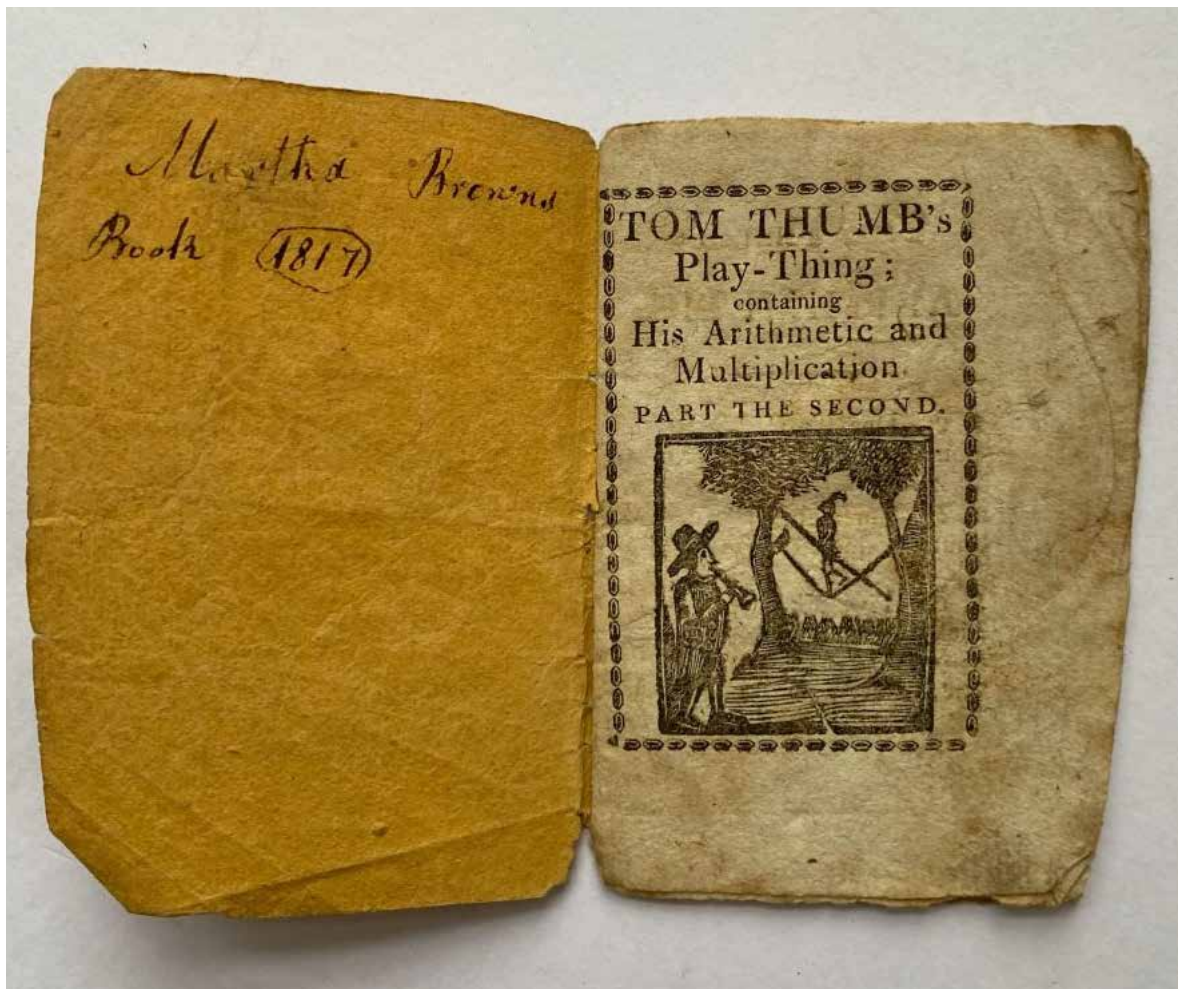 Martha Browns
Book 1817
TOM THUMB's
Play-Thing;
containing
His Arithmetic and
Multiplication.
PART THE SECOND.